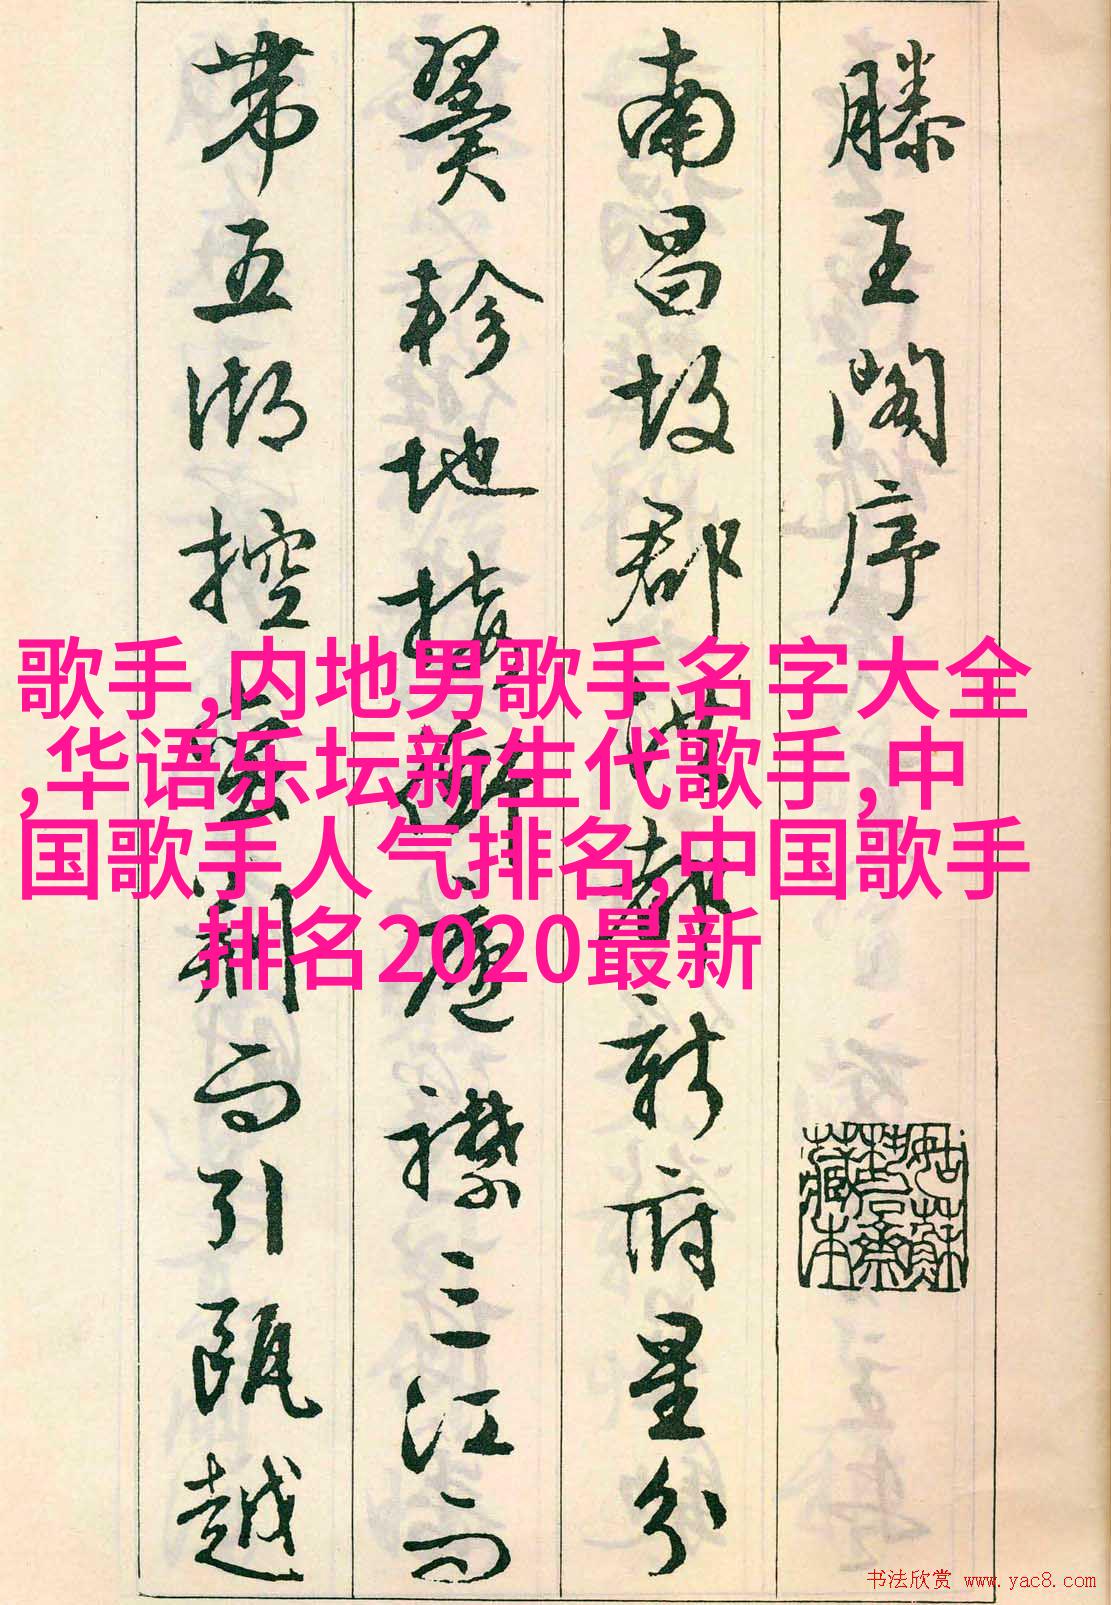 滕王閣序
南昌故郡洪都新府星分
翼軫地接衡廬襟三江而
帶五湖控蠻荊而引甌越
歌手,内地男歌手名字大全
,华语乐坛新生代歌手,中
国歌手人气排名,中国歌手
排名2020最新
书法欣赏 www.yac8.com